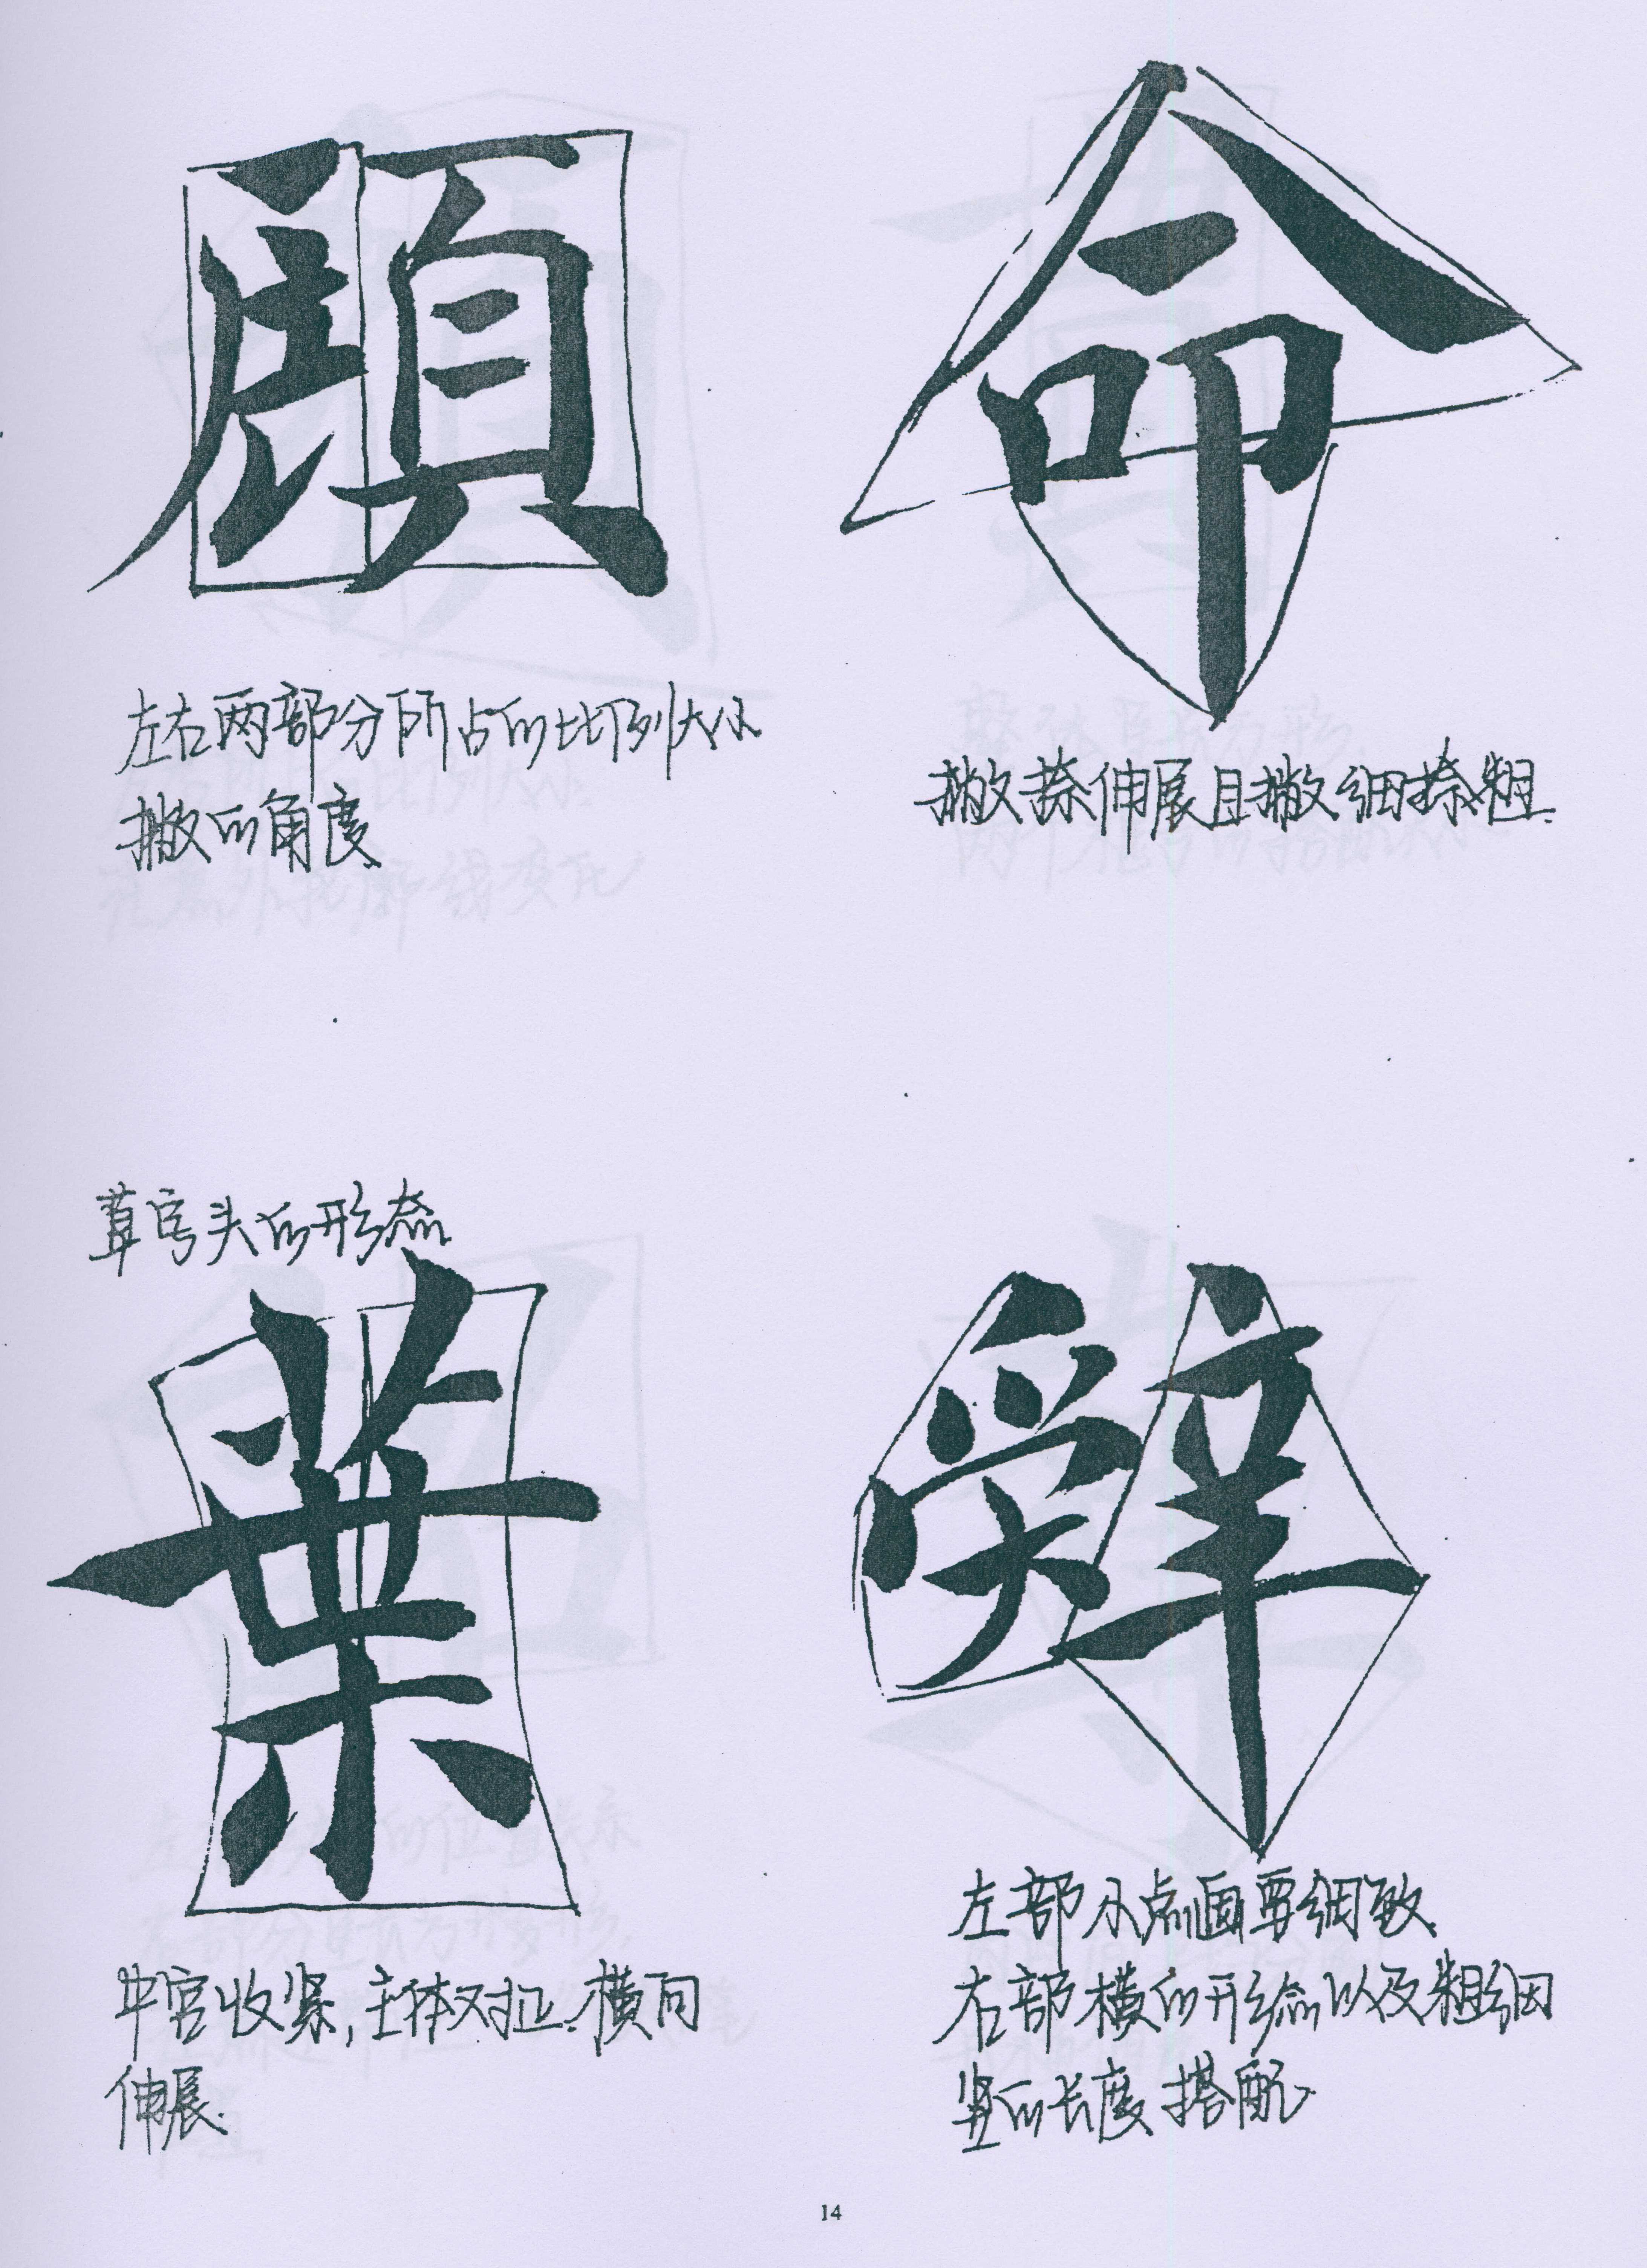 命
左右两部分所占的比例大小
撇的角度.
撇捺伸展且撇细捺粗.
草字头的形态
葉
辤
中宫收紧,主体对正.横向
伸展.
左部小点画要细致.
右部横的形态以及粗细
竖的长度搭配.
14